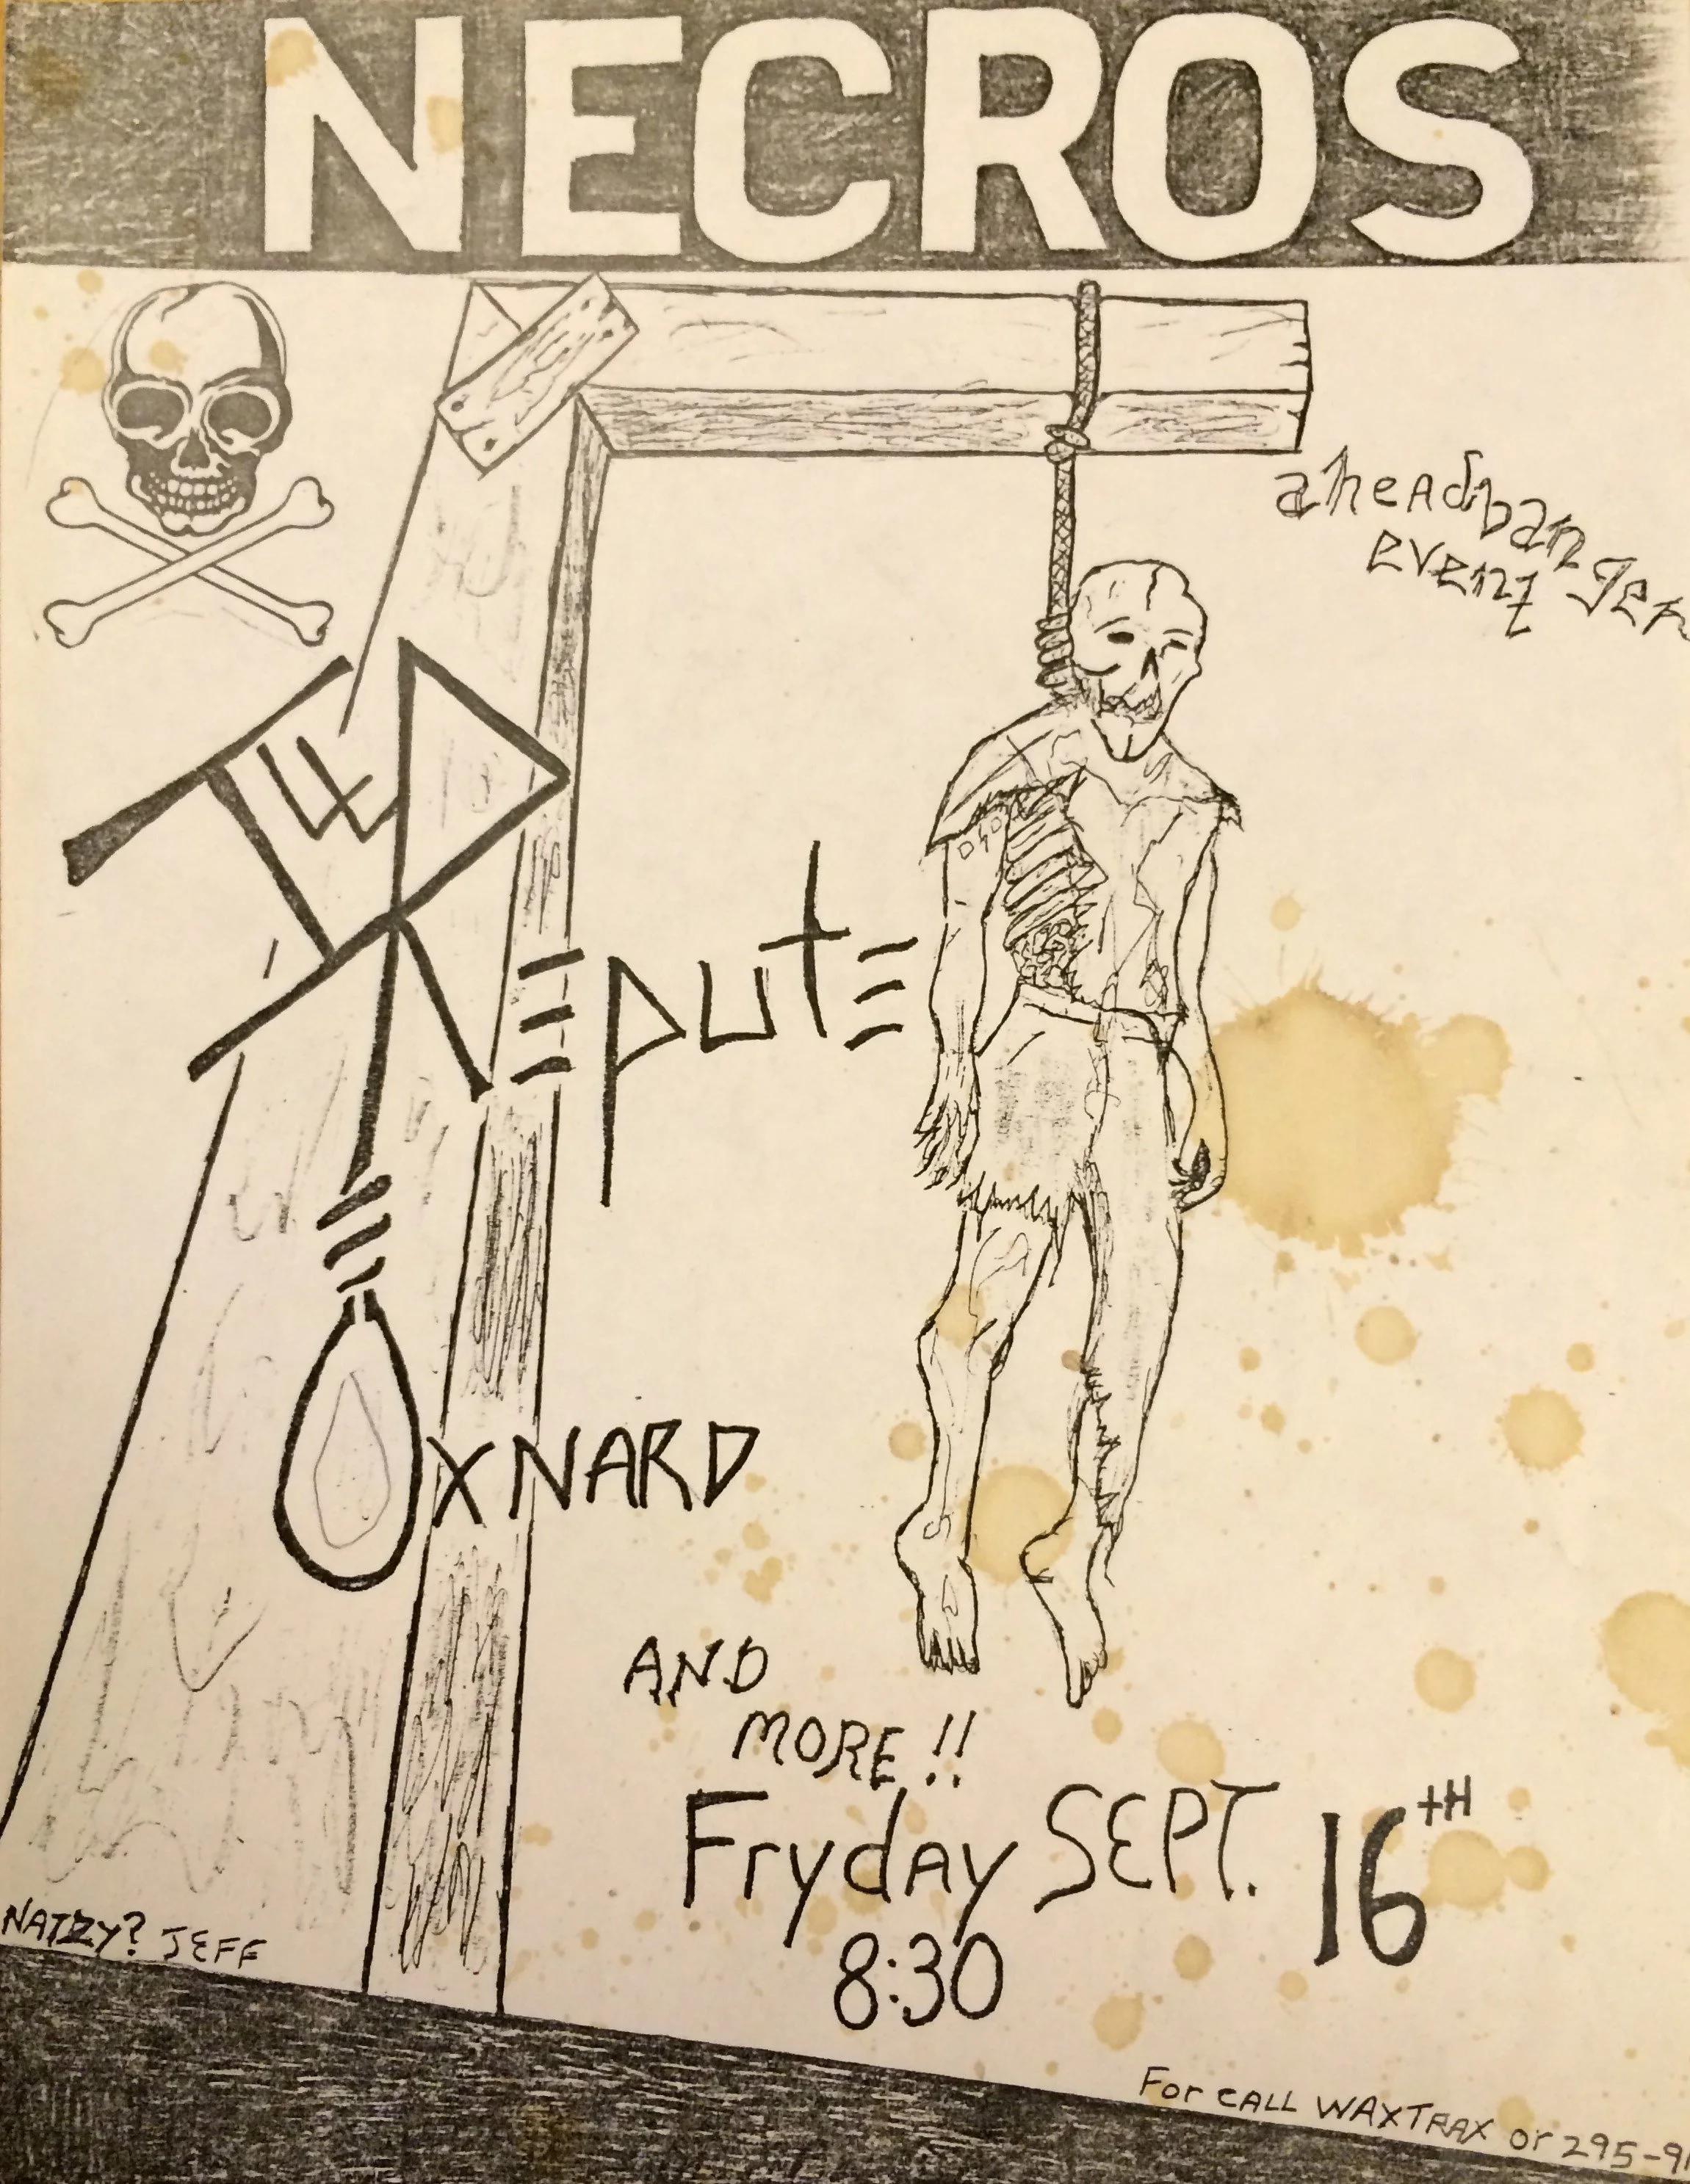 NECROS
a headbanger
event
Ill
REpute
OXNARD
AND
MORE!!
Fryday SEPT. 16TH
8:30
NATZY? JEFF
For CALL WAXTRAX or 295-9